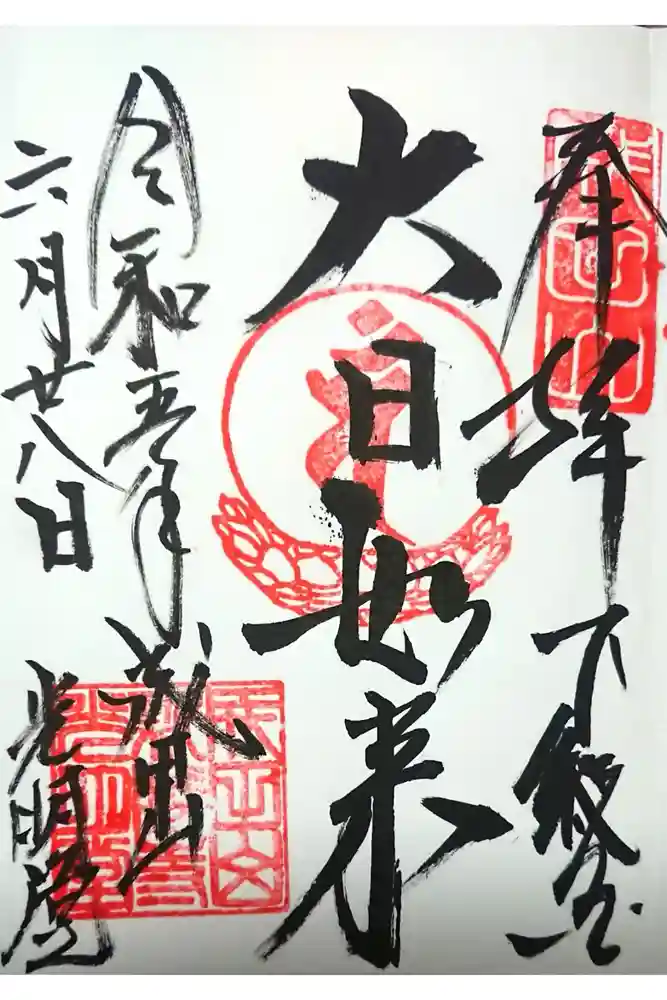 奉拝 下総
大日如来
令和五年
六月廿八日
成田山
光明堂
成田山